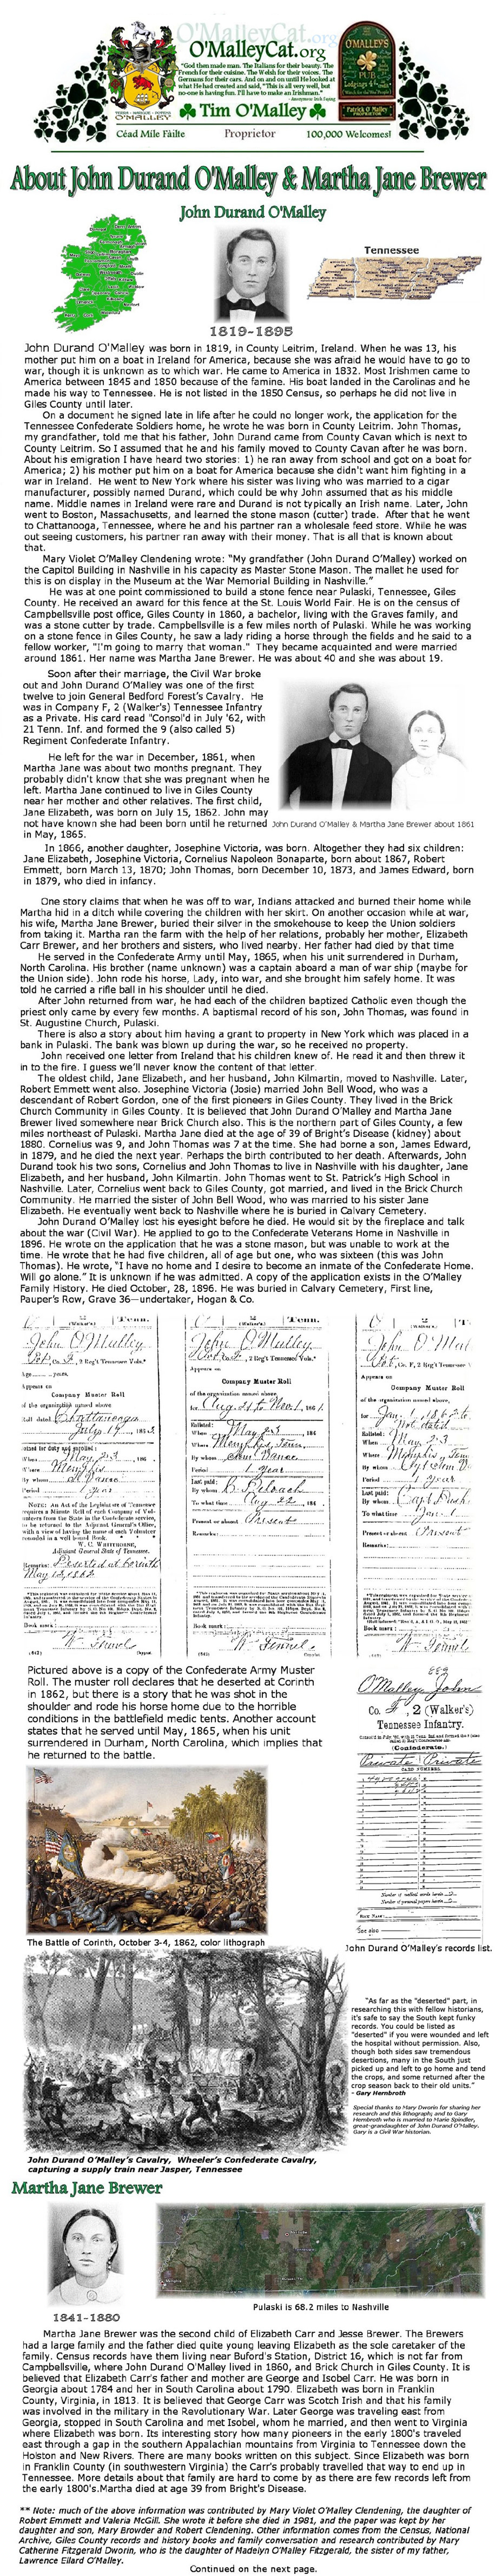 O'MalleyCat.org
O'MalleyCat.org
"God then made man. The Italians for their beauty. The
French for their cuisine. The Welsh for their voices. The
Germans for their cars. And on and on until He looked at
what He had created and said, "This is all very well, but
no-one is having fun. I'll have to make an Irishman."
- Anonymous Irish Saying
O'MALLEY
O'MALLEYS
PUB
Patrick O'Malley
PROPRIETOR
Tim O'Malley
Céad Míle Fáilte
Proprietor
100,000 Welcomes!
About John Durand O'Malley & Martha Jane Brewer
John Durand O'Malley
Tennessee
1819-1895
John Durand O'Malley was born in 1819, in County Leitrim, Ireland. When he was 13, his
mother put him on a boat in Ireland for America, because she was afraid he would have to go to
war, though it is unknown as to which war. He came to America in 1832. Most Irishmen came to
America between 1845 and 1850 because of the famine. His boat landed in the Carolinas and he
made his way to Tennessee. He is not listed in the 1850 Census, so perhaps he did not live in
Giles County until later.
On a document he signed late in life after he could no longer work, the application for the
Tennessee Confederate Soldiers home, he wrote he was born in County Leitrim. John Thomas,
my grandfather, told me that his father, John Durand came from County Cavan which is next to
County Leitrim. So I assumed that he and his family moved to County Cavan after he was born.
About his emigration I have heard two stories: 1) he ran away from school and got on a boat for
America; 2) his mother put him on a boat for America because she didn't want him fighting in a
war in Ireland. He went to New York where his sister was living who was married to a cigar
manufacturer, possibly named Durand, which could be why John assumed that as his middle
name. Middle names in Ireland were rare and Durand is not typically an Irish name. Later, John
went to Boston, Massachusetts, and learned the stone mason (cutter) trade. After that he went
to Chattanooga, Tennessee, where he and his partner ran a wholesale feed store. While he was
out seeing customers, his partner ran away with their money. That is all that is known about
that.
Mary Violet O'Malley Clendening wrote: "My grandfather (John Durand O'Malley) worked on
the Capitol Building in Nashville in his capacity as Master Stone Mason. The mallet he used for
this is on display in the Museum at the War Memorial Building in Nashville."
He was at one point commissioned to build a stone fence near Pulaski, Tennessee, Giles
County. He received an award for this fence at the St. Louis World Fair. He is on the census of
Campbellsville post office, Giles County in 1860, a bachelor, living with the Graves family, and
was a stone cutter by trade. Campbellsville is a few miles north of Pulaski. While he was working
on a stone fence in Giles County, he saw a lady riding a horse through the fields and he said to a
fellow worker, "I'm going to marry that woman." They became acquainted and were married
around 1861. Her name was Martha Jane Brewer. He was about 40 and she was about 19.
Soon after their marriage, the Civil War broke
out and John Durand O'Malley was one of the first
twelve to join General Bedford Forest's Cavalry. He
was in Company F, 2 (Walker's) Tennessee Infantry
as a Private. His card read "Consol'd in July '62, with
21 Tenn. Inf. and formed the 9 (also called 5)
Regiment Confederate Infantry.
He left for the war in December, 1861, when
Martha Jane was about two months pregnant. They
probably didn't know that she was pregnant when he
left. Martha Jane continued to live in Giles County
near her mother and other relatives. The first child,
Jane Elizabeth, was born on July 15, 1862. John may
not have known she had been born until he returned
in May, 1865.
John Durand O'Malley & Martha Jane Brewer about 1861
In 1866, another daughter, Josephine Victoria, was born. Altogether they had six children:
Jane Elizabeth, Josephine Victoria, Cornelius Napoleon Bonaparte, born about 1867, Robert
Emmett, born March 13, 1870; John Thomas, born December 10, 1873, and James Edward, born
in 1879, who died in infancy.
One story claims that when he was off to war, Indians attacked and burned their home while
Martha hid in a ditch while covering the children with her skirt. On another occasion while at war,
his wife, Martha Jane Brewer, buried their silver in the smokehouse to keep the Union soldiers
from taking it. Martha ran the farm with the help of her relations, probably her mother, Elizabeth
Carr Brewer, and her brothers and sisters, who lived nearby. Her father had died by that time
He served in the Confederate Army until May, 1865, when his unit surrendered in Durham,
North Carolina. His brother (name unknown) was a captain aboard a man of war ship (maybe for
the Union side). John rode his horse, Lady, into war, and she brought him safely home. It was
told he carried a rifle ball in his shoulder until he died.
After John returned from war, he had each of the children baptized Catholic even though the
priest only came by every few months. A baptismal record of his son, John Thomas, was found in
St. Augustine Church, Pulaski.
There is also a story about him having a grant to property in New York which was placed in a
bank in Pulaski. The bank was blown up during the war, so he received no property.
John received one letter from Ireland that his children knew of. He read it and then threw it
in to the fire. I guess we'll never know the content of that letter.
The oldest child, Jane Elizabeth, and her husband, John Kilmartin, moved to Nashville. Later,
Robert Emmett went also. Josephine Victoria (Josie) married John Bell Wood, who was a
descendant of Robert Gordon, one of the first pioneers in Giles County. They lived in the Brick
Church Community in Giles County. It is believed that John Durand O'Malley and Martha Jane
Brewer lived somewhere near Brick Church also. This is the northern part of Giles County, a few
miles northeast of Pulaski. Martha Jane died at the age of 39 of Bright's Disease (kidney) about
1880. Cornelius was 9, and John Thomas was 7 at the time. She had borne a son, James Edward,
in 1879, and he died the next year. Perhaps the birth contributed to her death. Afterwards, John
Durand took his two sons, Cornelius and John Thomas to live in Nashville with his daughter, Jane
Elizabeth, and her husband, John Kilmartin. John Thomas went to St. Patrick's High School in
Nashville. Later, Cornelius went back to Giles County, got married, and lived in the Brick Church
Community. He married the sister of John Bell Wood, who was married to his sister Jane
Elizabeth. He eventually went back to Nashville where he is buried in Calvary Cemetery.
John Durand O'Malley lost his eyesight before he died. He would sit by the fireplace and talk
about the war (Civil War). He applied to go to the Confederate Veterans Home in Nashville in
1896. He wrote on the application that he was a stone mason, but was unable to work at the
time. He wrote that he had five children, all of age but one, who was sixteen (this was John
Thomas). He wrote, "I have no home and I desire to become an inmate of the Confederate Home.
Will go alone." It is unknown if he was admitted. A copy of the application exists in the O'Malley
Family History. He died October, 28, 1896. He was buried in Calvary Cemetery, First line,
Pauper's Row, Grave 36—undertaker, Hogan & Co.
Company Muster Roll
Company Muster Roll
Company Muster Roll
Pictured above is a copy of the Confederate Army Muster
Roll. The muster roll declares that he deserted at Corinth
in 1862, but there is a story that he was shot in the
shoulder and rode his horse home due to the horrible
conditions in the battlefield medic tents. Another account
states that he served until May, 1865, when his unit
surrendered in Durham, North Carolina, which implies that
he returned to the battle.
O'Malley John
Co. F, 2 (Walker's)
Tennessee Infantry.
(Confederate.)
Private Private
CARD NUMBERS.
See also
The Battle of Corinth, October 3-4, 1862, color lithograph
John Durand O'Malley's records list.
"As far as the "deserted" part, in
researching this with fellow historians,
it's safe to say the South kept funky
records. You could be listed as
"deserted" if you were wounded and left
the hospital without permission. Also,
though both sides saw tremendous
desertions, many in the South just
picked up and left to go home and tend
the crops, and some returned after the
crop season back to their old units."
- Gary Hembroth
Special thanks to Mary Dworin for sharing her
research and this lithograph; and to Gary
Hembroth who is married to Marie Spindler,
great-grandaughter of John Durand O'Malley.
Gary is a Civil War historian.
John Durand O'Malley's Cavalry, Wheeler's Confederate Cavalry,
capturing a supply train near Jasper, Tennessee
Martha Jane Brewer
1841-1880
Pulaski is 68.2 miles to Nashville
Martha Jane Brewer was the second child of Elizabeth Carr and Jesse Brewer. The Brewers
had a large family and the father died quite young leaving Elizabeth as the sole caretaker of the
family. Census records have them living near Buford's Station, District 16, which is not far from
Campbellsville, where John Durand O'Malley lived in 1860, and Brick Church in Giles County. It is
believed that Elizabeth Carr's father and mother are George and Isobel Carr. He was born in
Georgia about 1784 and her in South Carolina about 1790. Elizabeth was born in Franklin
County, Virginia, in 1813. It is believed that George Carr was Scotch Irish and that his family
was involved in the military in the Revolutionary War. Later George was traveling east from
Georgia, stopped in South Carolina and met Isobel, whom he married, and then went to Virginia
where Elizabeth was born. Its interesting story how many pioneers in the early 1800's traveled
east through a gap in the southern Appalachian mountains from Virginia to Tennessee down the
Holston and New Rivers. There are many books written on this subject. Since Elizabeth was born
in Franklin County (in southwestern Virginia) the Carr's probably travelled that way to end up in
Tennessee. More details about that family are hard to come by as there are few records left from
the early 1800's.Martha died at age 39 from Bright's Disease.
** Note: much of the above information was contributed by Mary Violet O'Malley Clendening, the daughter of
Robert Emmett and Valeria McGill. She wrote it before she died in 1981, and the paper was kept by her
daughter and son, Mary Browder and Robert Clendening. Other information comes from the Census, National
Archive, Giles County records and history books and family conversation and research contributed by Mary
Catherine Fitzgerald Dworin, who is the daughter of Madelyn O'Malley Fitzgerald, the sister of my father,
Lawrence Ellard O'Malley.
Continued on the next page.